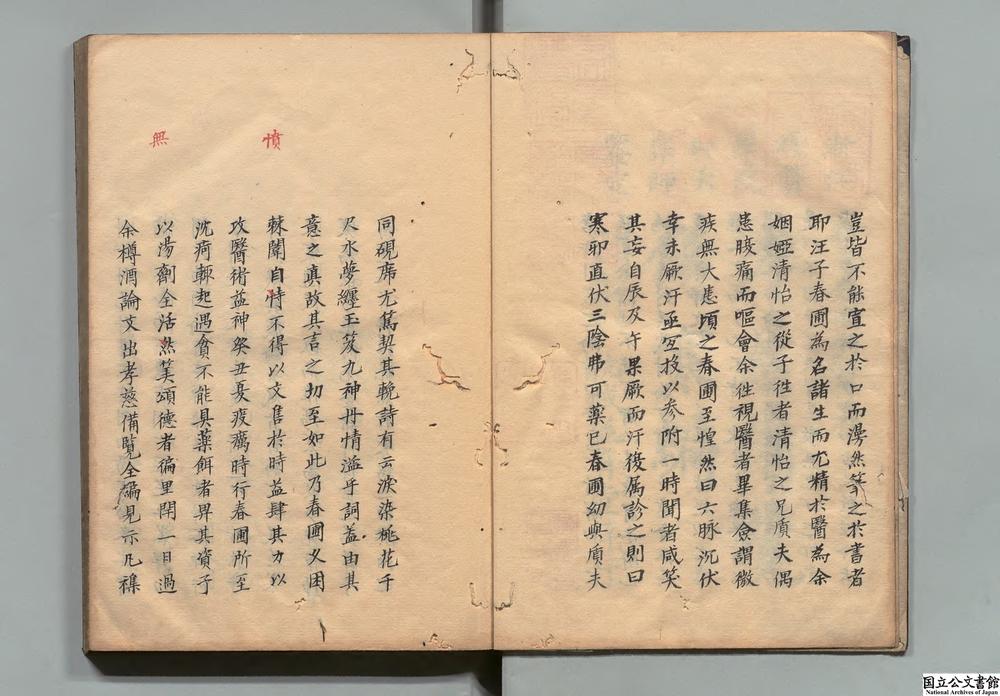 豈皆不能宣之於口而濡然筆之於書者
耶汪子春圃為名諸生而尤精於醫為余
姻婭清怡之從子徃者清怡之兄質夫偶
患腹痛而嘔會余徃視醫者畢集僉謂微
疾無大患頃之春圃至惶然曰六脉沉伏
幸未厥汗亟宜投以參附一時聞者咸笑
其妄自辰及午果厥而汗後属診之則曰
寒邪直伏三陰弗可藥已春圃幼與質夫
同硯席尤篤契其輓詩有云淚染桃花千
尺水夢纏玉笈九神丹情溢乎詞葢由其
意之真故其言之切至如此乃春圃乂困
棘闈自恃不得以文售於時益肆其力以
憤
攻醫術益神癸丑夏疫癘時行春圃所至
沈疴輙起遇貧不能具藥餌者畀其資予
以湯劑全活然筭頌德者徧里閈一日過
無
余樽酒論文出孝慈備覽全編見示凡襍
国立公文書館
National Archives of Japan